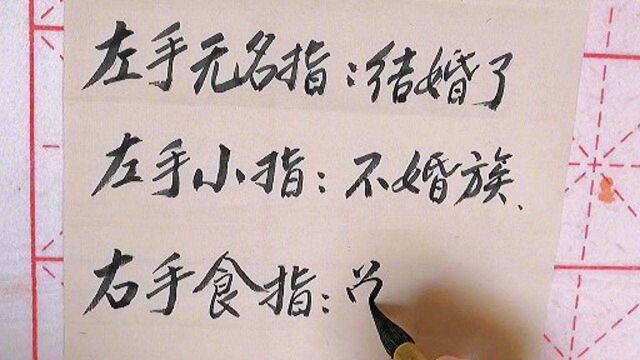 左手无名指：结婚了
左手小指：不婚族、
右手食指：